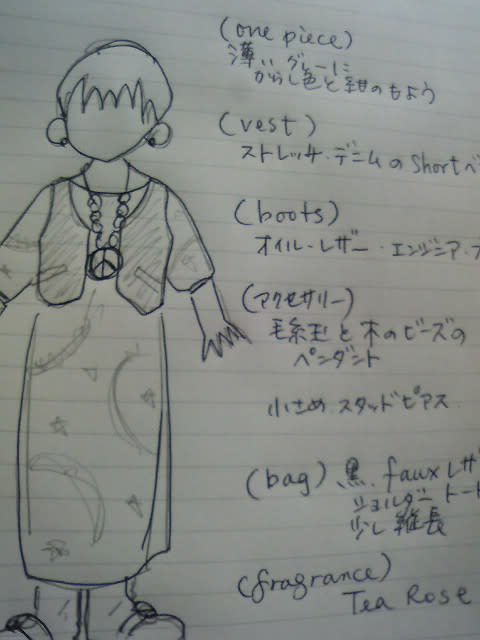 (one piece)
薄い グレーに
からし色と 紺のもよう
(vest)
ストレッチ・デニムの short
(boots)
オイル・レザー・エンジニア・
(アクセサリー)
毛糸玉と 木のビーズの
ペンダント
小さめ スタッドピアス
(bag) 黒. faux レザ
ショルダー トート
少し 縦長
(fragrance)
Tea Rose